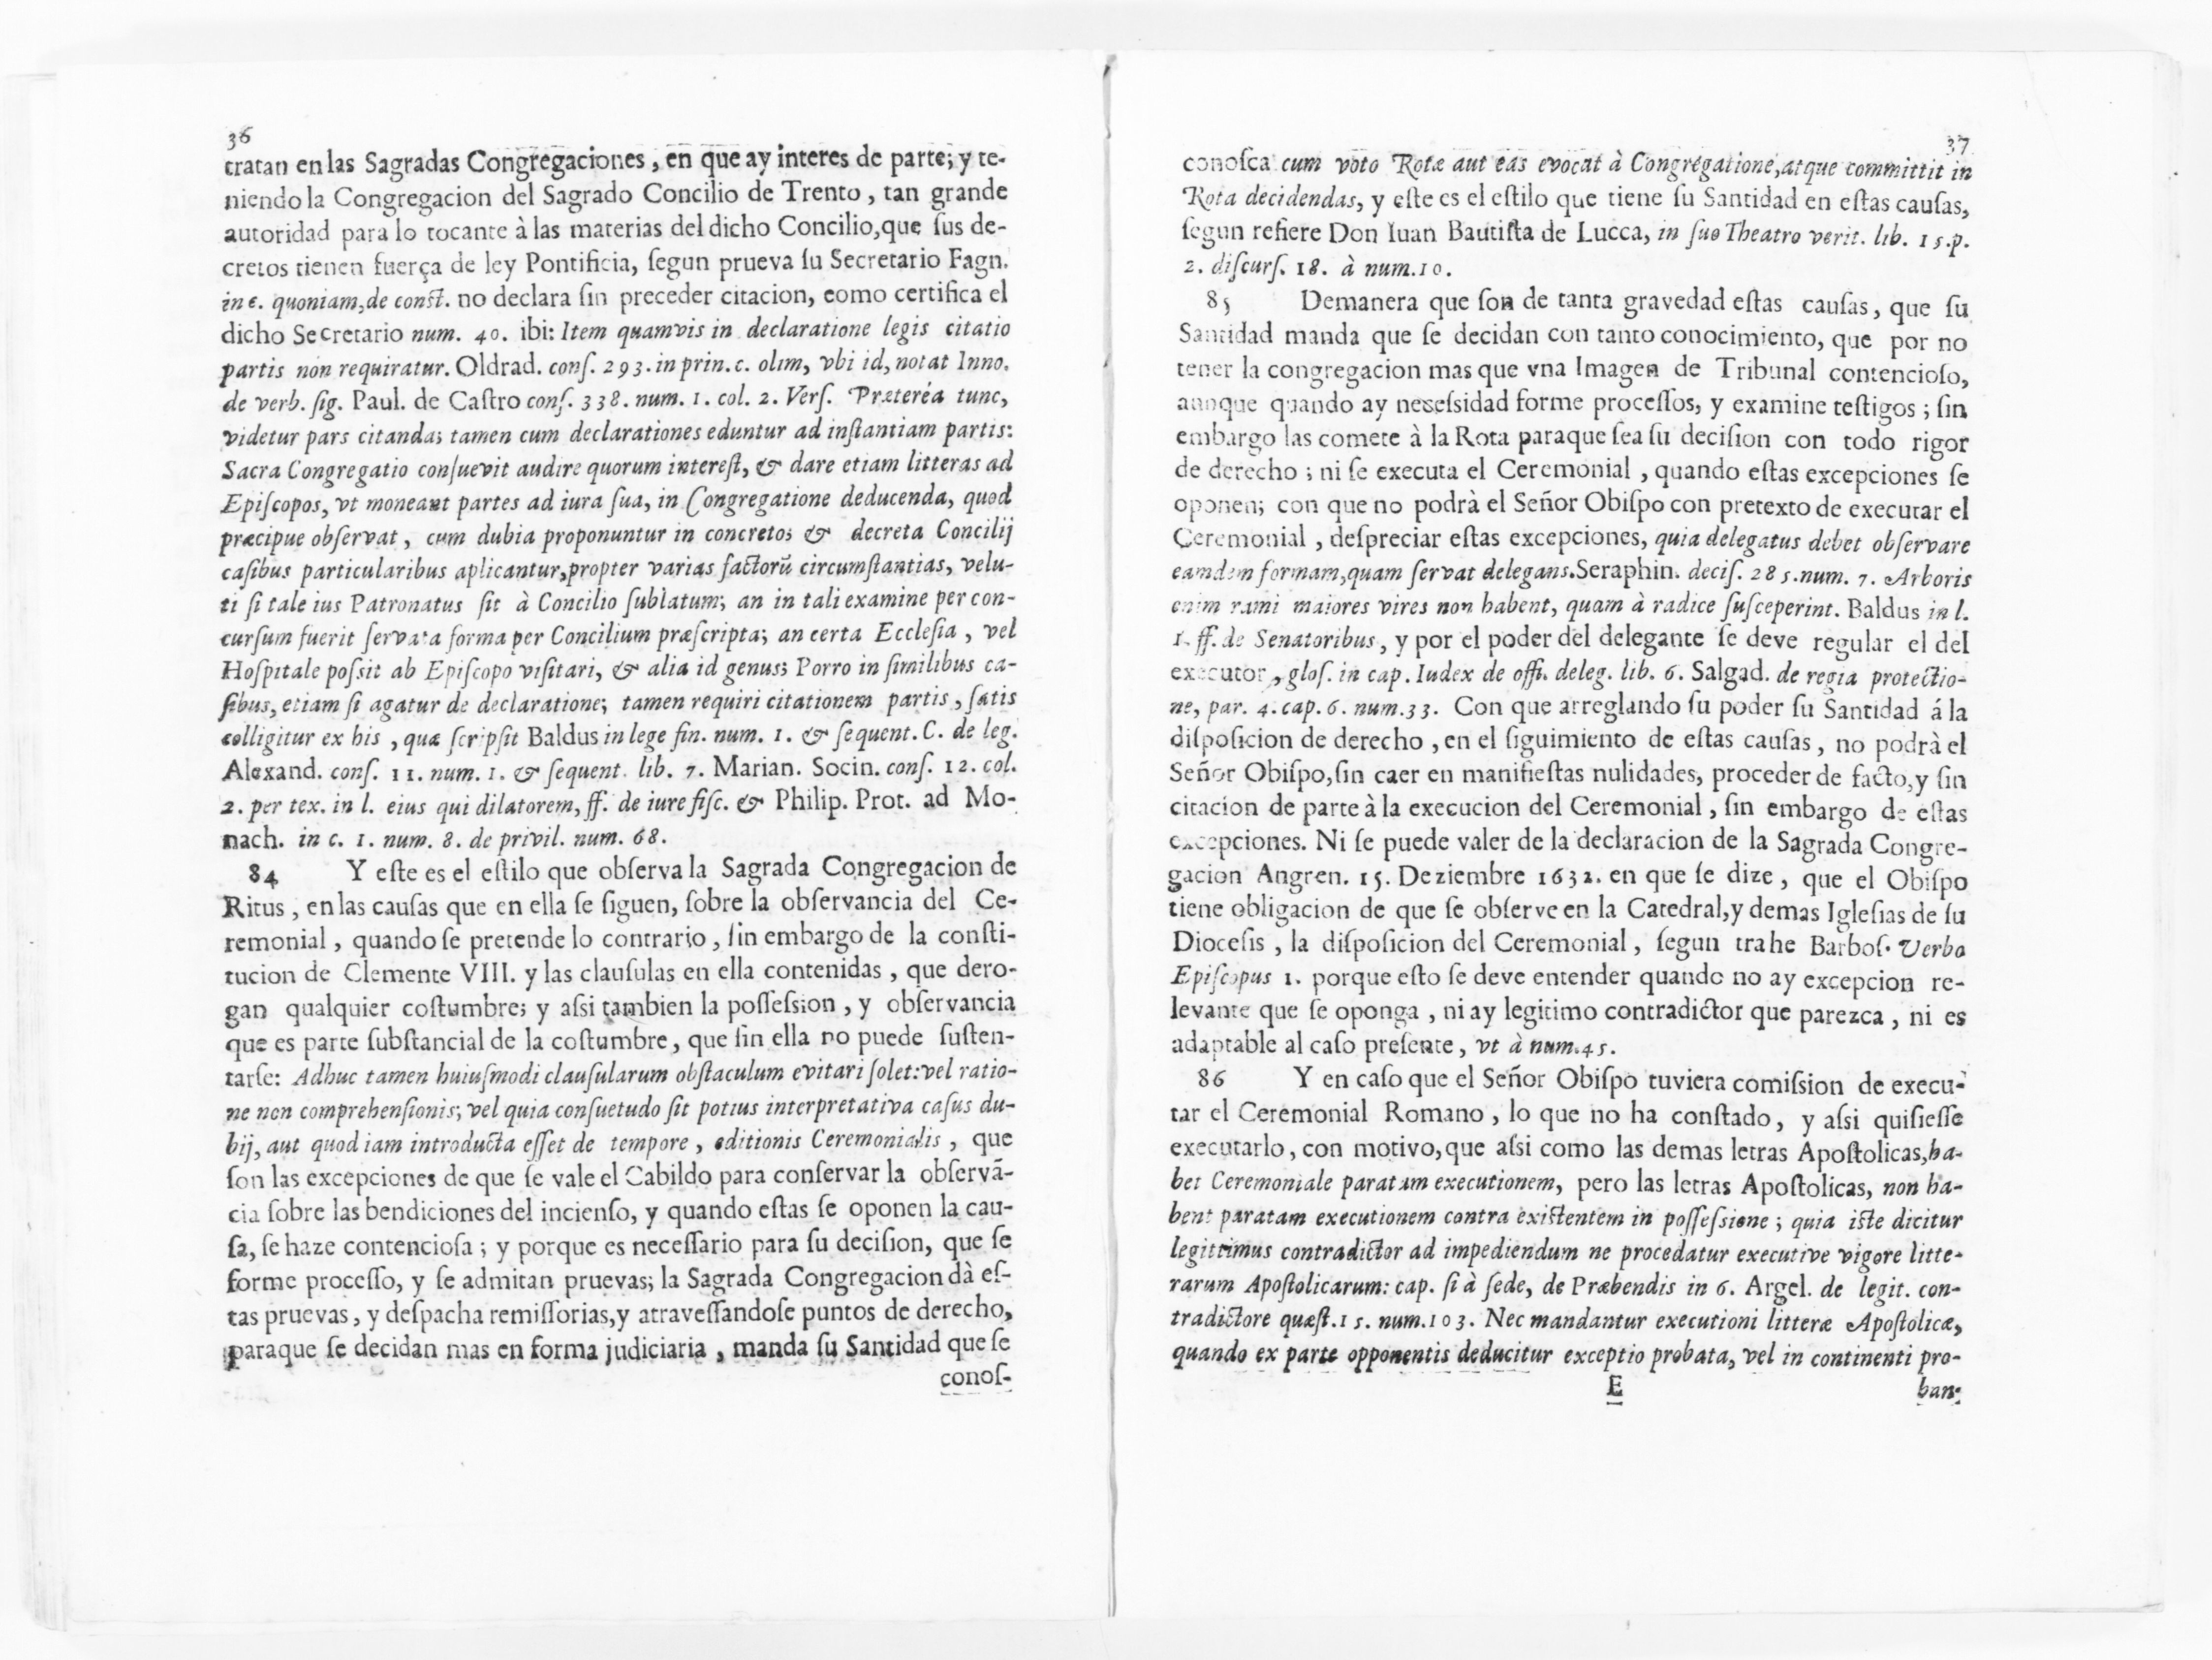 36
tratan en las Sagradas Congregaciones, en que ay interes de parte; y te-
niendo la Congregacion del Sagrado Concilio de Trento, tan grande
autoridad para lo tocante à las materias del dicho Concilio, que ſus de-
cretos tienen fuerça de ley Pontificia, ſegun prueva ſu Secretario Fagn.
in c. quoniam, de conſt. no declara ſin preceder citacion, como certifica el
dicho Secretario num. 40. ibi: Item quamvis in declaratione legis citatio
partis non requiratur. Oldrad. conſ. 293. in prin. c. olim, vbi id, notat Inno.
de verb. ſig. Paul. de Caſtro conſ. 338. num. 1. col. 2. Verſ. Præterèa tunc,
videtur pars citanda; tamen cum declarationes eduntur ad inſtantiam partis:
Sacra Congregatio conſuevit audire quorum intereſt, & dare etiam litteras ad
Epiſcopos, vt moneant partes ad iura ſua, in Congregatione deducenda, quod
præcipue obſervat, cum dubia proponuntur in concreto; & decreta Concilij
caſibus particularibus aplicantur, propter varias factorũ circumſtantias, velu-
ti ſi tale ius Patronatus ſit à Concilio ſublatum; an in tali examine per con-
curſum fuerit ſervata forma per Concilium præſcripta; an certa Eccleſia, vel
Hoſpitale poſsit ab Epiſcopo viſitari, & alia id genus; Porro in ſimilibus ca-
ſibus, etiam ſi agatur de declaratione; tamen requiri citationem partis, ſatis
colligitur ex his, quæ ſcripſit Baldus in lege fin. num. 1. & ſequent. C. de leg.
Alexand. conſ. 11. num. 1. & ſequent. lib. 7. Marian. Socin. conſ. 12. col.
2. per tex. in l. eius qui dilatorem, ff. de iure fiſc. & Philip. Prot. ad Mo-
nach. in c. 1. num. 8. de privil. num. 68.
84 Y eſte es el eſtilo que obſerva la Sagrada Congregacion de
Ritus, en las cauſas que en ella ſe ſiguen, ſobre la obſervancia del Ce-
remonial, quando ſe pretende lo contrario, ſin embargo de la conſti-
tucion de Clemente VIII. y las clauſulas en ella contenidas, que dero-
gan qualquier coſtumbre; y aſsi tambien la poſſeſsion, y obſervancia
que es parte ſubſtancial de la coſtumbre, que ſin ella no puede ſuſten-
tarſe: Adhuc tamen huiuſmodi clauſularum obſtaculum evitari ſolet: vel ratio-
ne non comprehenſionis; vel quia conſuetudo ſit potius interpretativa caſus du-
bij, aut quod iam introducta eſſet de tempore, editionis Ceremonialis, que
ſon las excepciones de que ſe vale el Cabildo para conſervar la obſervã-
cia ſobre las bendiciones del incienſo, y quando eſtas ſe oponen la cau-
ſa, ſe haze contencioſa; y porque es neceſſario para ſu deciſion, que ſe
forme proceſſo, y ſe admitan pruevas; la Sagrada Congregacion dà eſ-
tas pruevas, y deſpacha remiſſorias, y atraveſſandoſe puntos de derecho,
paraque ſe decidan mas en forma judiciaria, manda ſu Santidad que ſe
conoſ-
37
conoſca cum voto Rotæ aut eas evocat à Congregatione, atque committit in
Rota decidendas, y eſte es el eſtilo que tiene ſu Santidad en eſtas cauſas,
ſegun refiere Don Iuan Bautiſta de Lucca, in ſuo Theatro verit. lib. 15. p.
2. diſcurſ. 18. à num. 10.
85 Demanera que ſon de tanta gravedad eſtas cauſas, que ſu
Santidad manda que ſe decidan con tanto conocimiento, que por no
tener la congregacion mas que vna Imagen de Tribunal contencioſo,
aunque quando ay neceſsidad forme proceſſos, y examine teſtigos; ſin
embargo las comete à la Rota paraque ſea ſu deciſion con todo rigor
de derecho; ni ſe executa el Ceremonial, quando eſtas excepciones ſe
oponen; con que no podrà el Señor Obiſpo con pretexto de executar el
Ceremonial, deſpreciar eſtas excepciones, quia delegatus debet obſervare
eamdem formam, quam ſervat delegans. Seraphin. deciſ. 285. num. 7. Arboris
enim rami maiores vires non habent, quam à radice ſuſceperint. Baldus in l.
1. ff. de Senatoribus, y por el poder del delegante ſe deve regular el del
executor, gloſ. in cap. Iudex de offi. deleg. lib. 6. Salgad. de regia protectio-
ne, par. 4. cap. 6. num. 33. Con que arreglando ſu poder ſu Santidad á la
diſpoſicion de derecho, en el ſiguimiento de eſtas cauſas, no podrà el
Señor Obiſpo, ſin caer en manifieſtas nulidades, proceder de facto, y ſin
citacion de parte à la execucion del Ceremonial, ſin embargo de eſtas
excepciones. Ni ſe puede valer de la declaracion de la Sagrada Congre-
gacion Angren. 15. Deziembre 1632. en que ſe dize, que el Obiſpo
tiene obligacion de que ſe obſerve en la Catedral, y demas Igleſias de ſu
Dioceſis, la diſpoſicion del Ceremonial, ſegun trahe Barboſ. Verbo
Epiſcopus 1. porque eſto ſe deve entender quando no ay excepcion re-
levante que ſe oponga, ni ay legitimo contradictor que parezca, ni es
adaptable al caſo preſente, vt à num. 45.
86 Y en caſo que el Señor Obiſpo tuviera comiſsion de execu-
tar el Ceremonial Romano, lo que no ha conſtado, y aſsi quiſieſſe
executarlo, con motivo, que aſsi como las demas letras Apoſtolicas, ha-
bet Ceremoniale paratam executionem, pero las letras Apoſtolicas, non ha-
bent paratam executionem contra exiſtentem in poſſeſsione; quia iſte dicitur
legittimus contradictor ad impediendum ne procedatur executive vigore litte-
rarum Apoſtolicarum: cap. ſi à ſede, de Præbendis in 6. Argel. de legit. con-
tradictore quæſt. 15. num. 103. Nec mandantur executioni litteræ Apoſtolicæ,
quando ex parte opponentis deducitur exceptio probata, vel in continenti pro-
E ban-